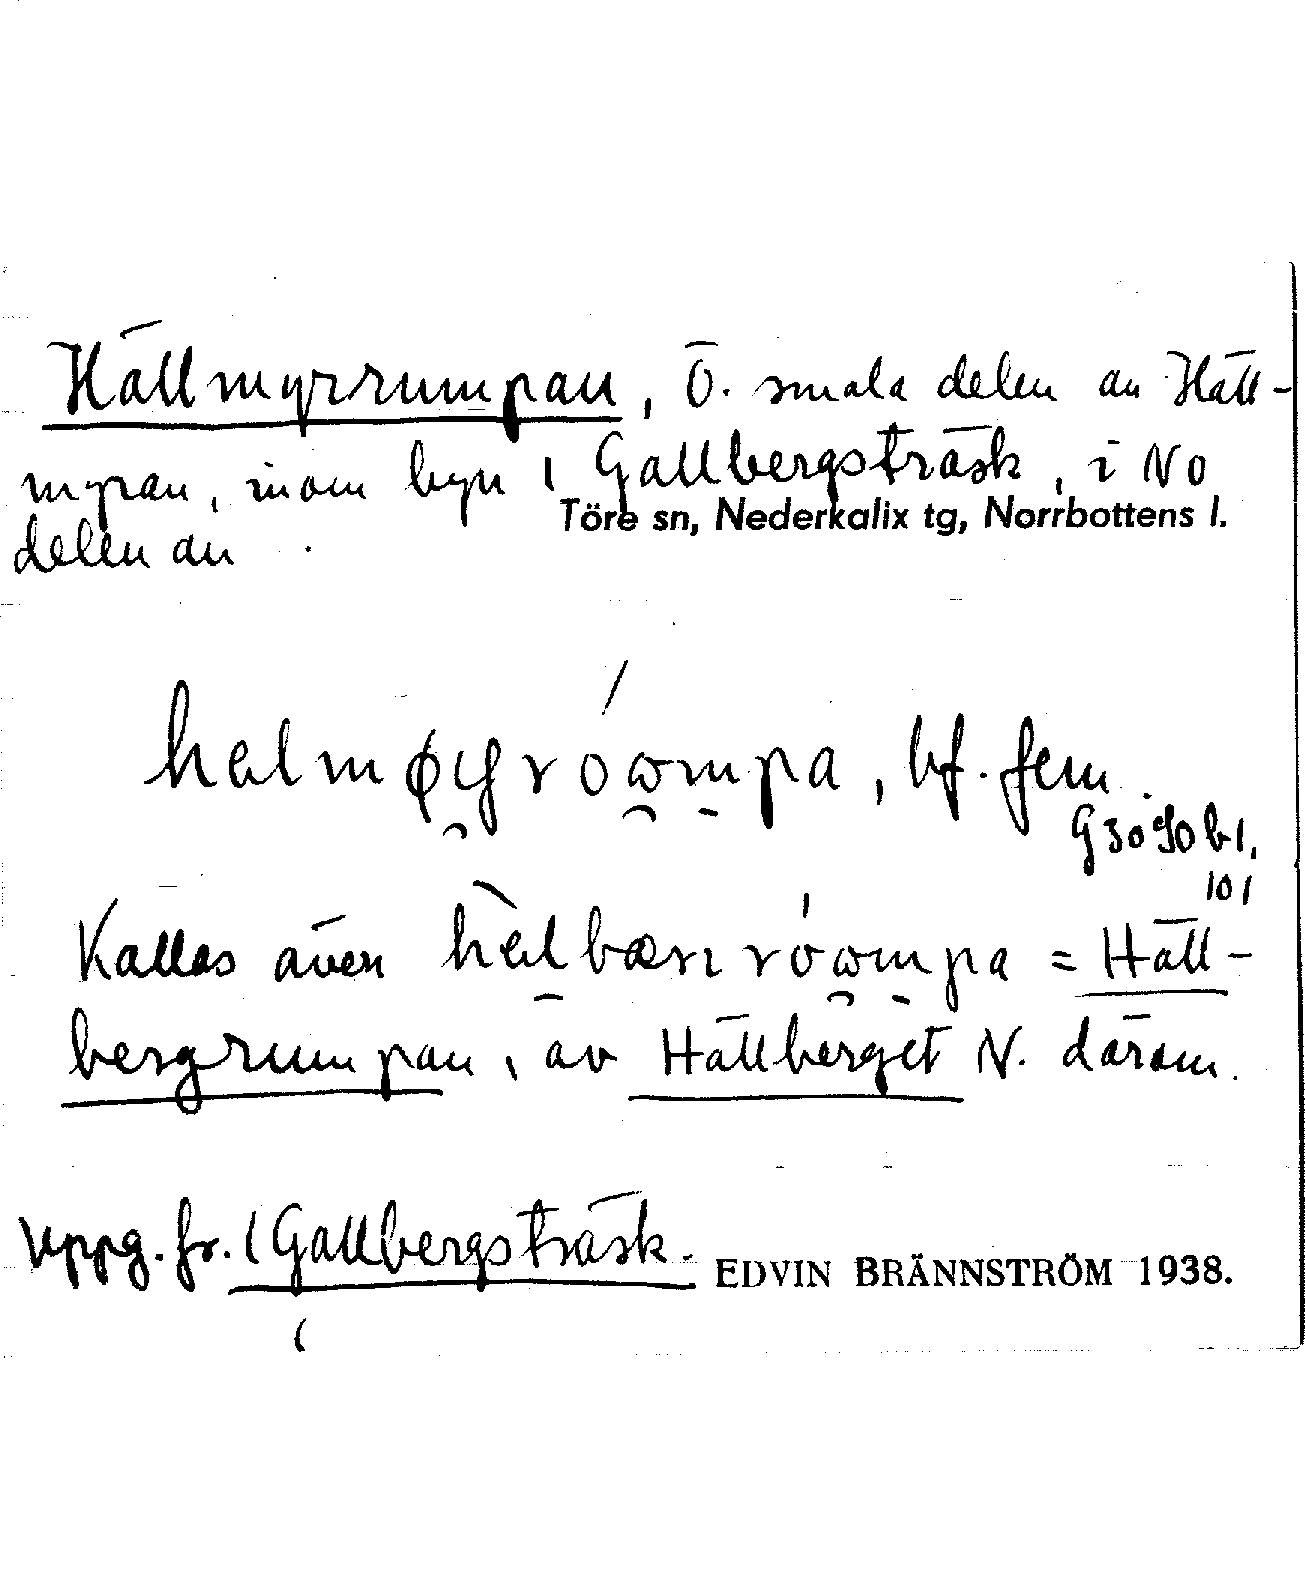 Hällmyrrumpan, Ö. smala delen av Häll-
myran, inom byn Gallbergsträsk, i NO
Töre sn, Nederkalix tg, Norrbottens l.
delen av
bf. fem.
Kallas även = Häll-
bergrumpan, av Hällberget N. därom.
Uppg. fr. Gallbergsträsk.
EDVIN BRÄNNSTRÖM 1938.